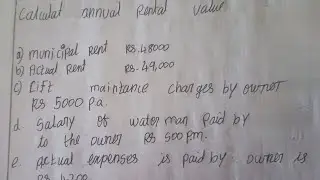 Calculat annual Rental value
a) municipal Rent Rs.48000
b) Actual Rent Rs.49,000
c) Lift maintance charges by owner
Rs 5000 pa.
d. Salary of water man paid by
to the owner Rs 500 pm.
e. Actual expenses is paid by owner is
Rs 4200